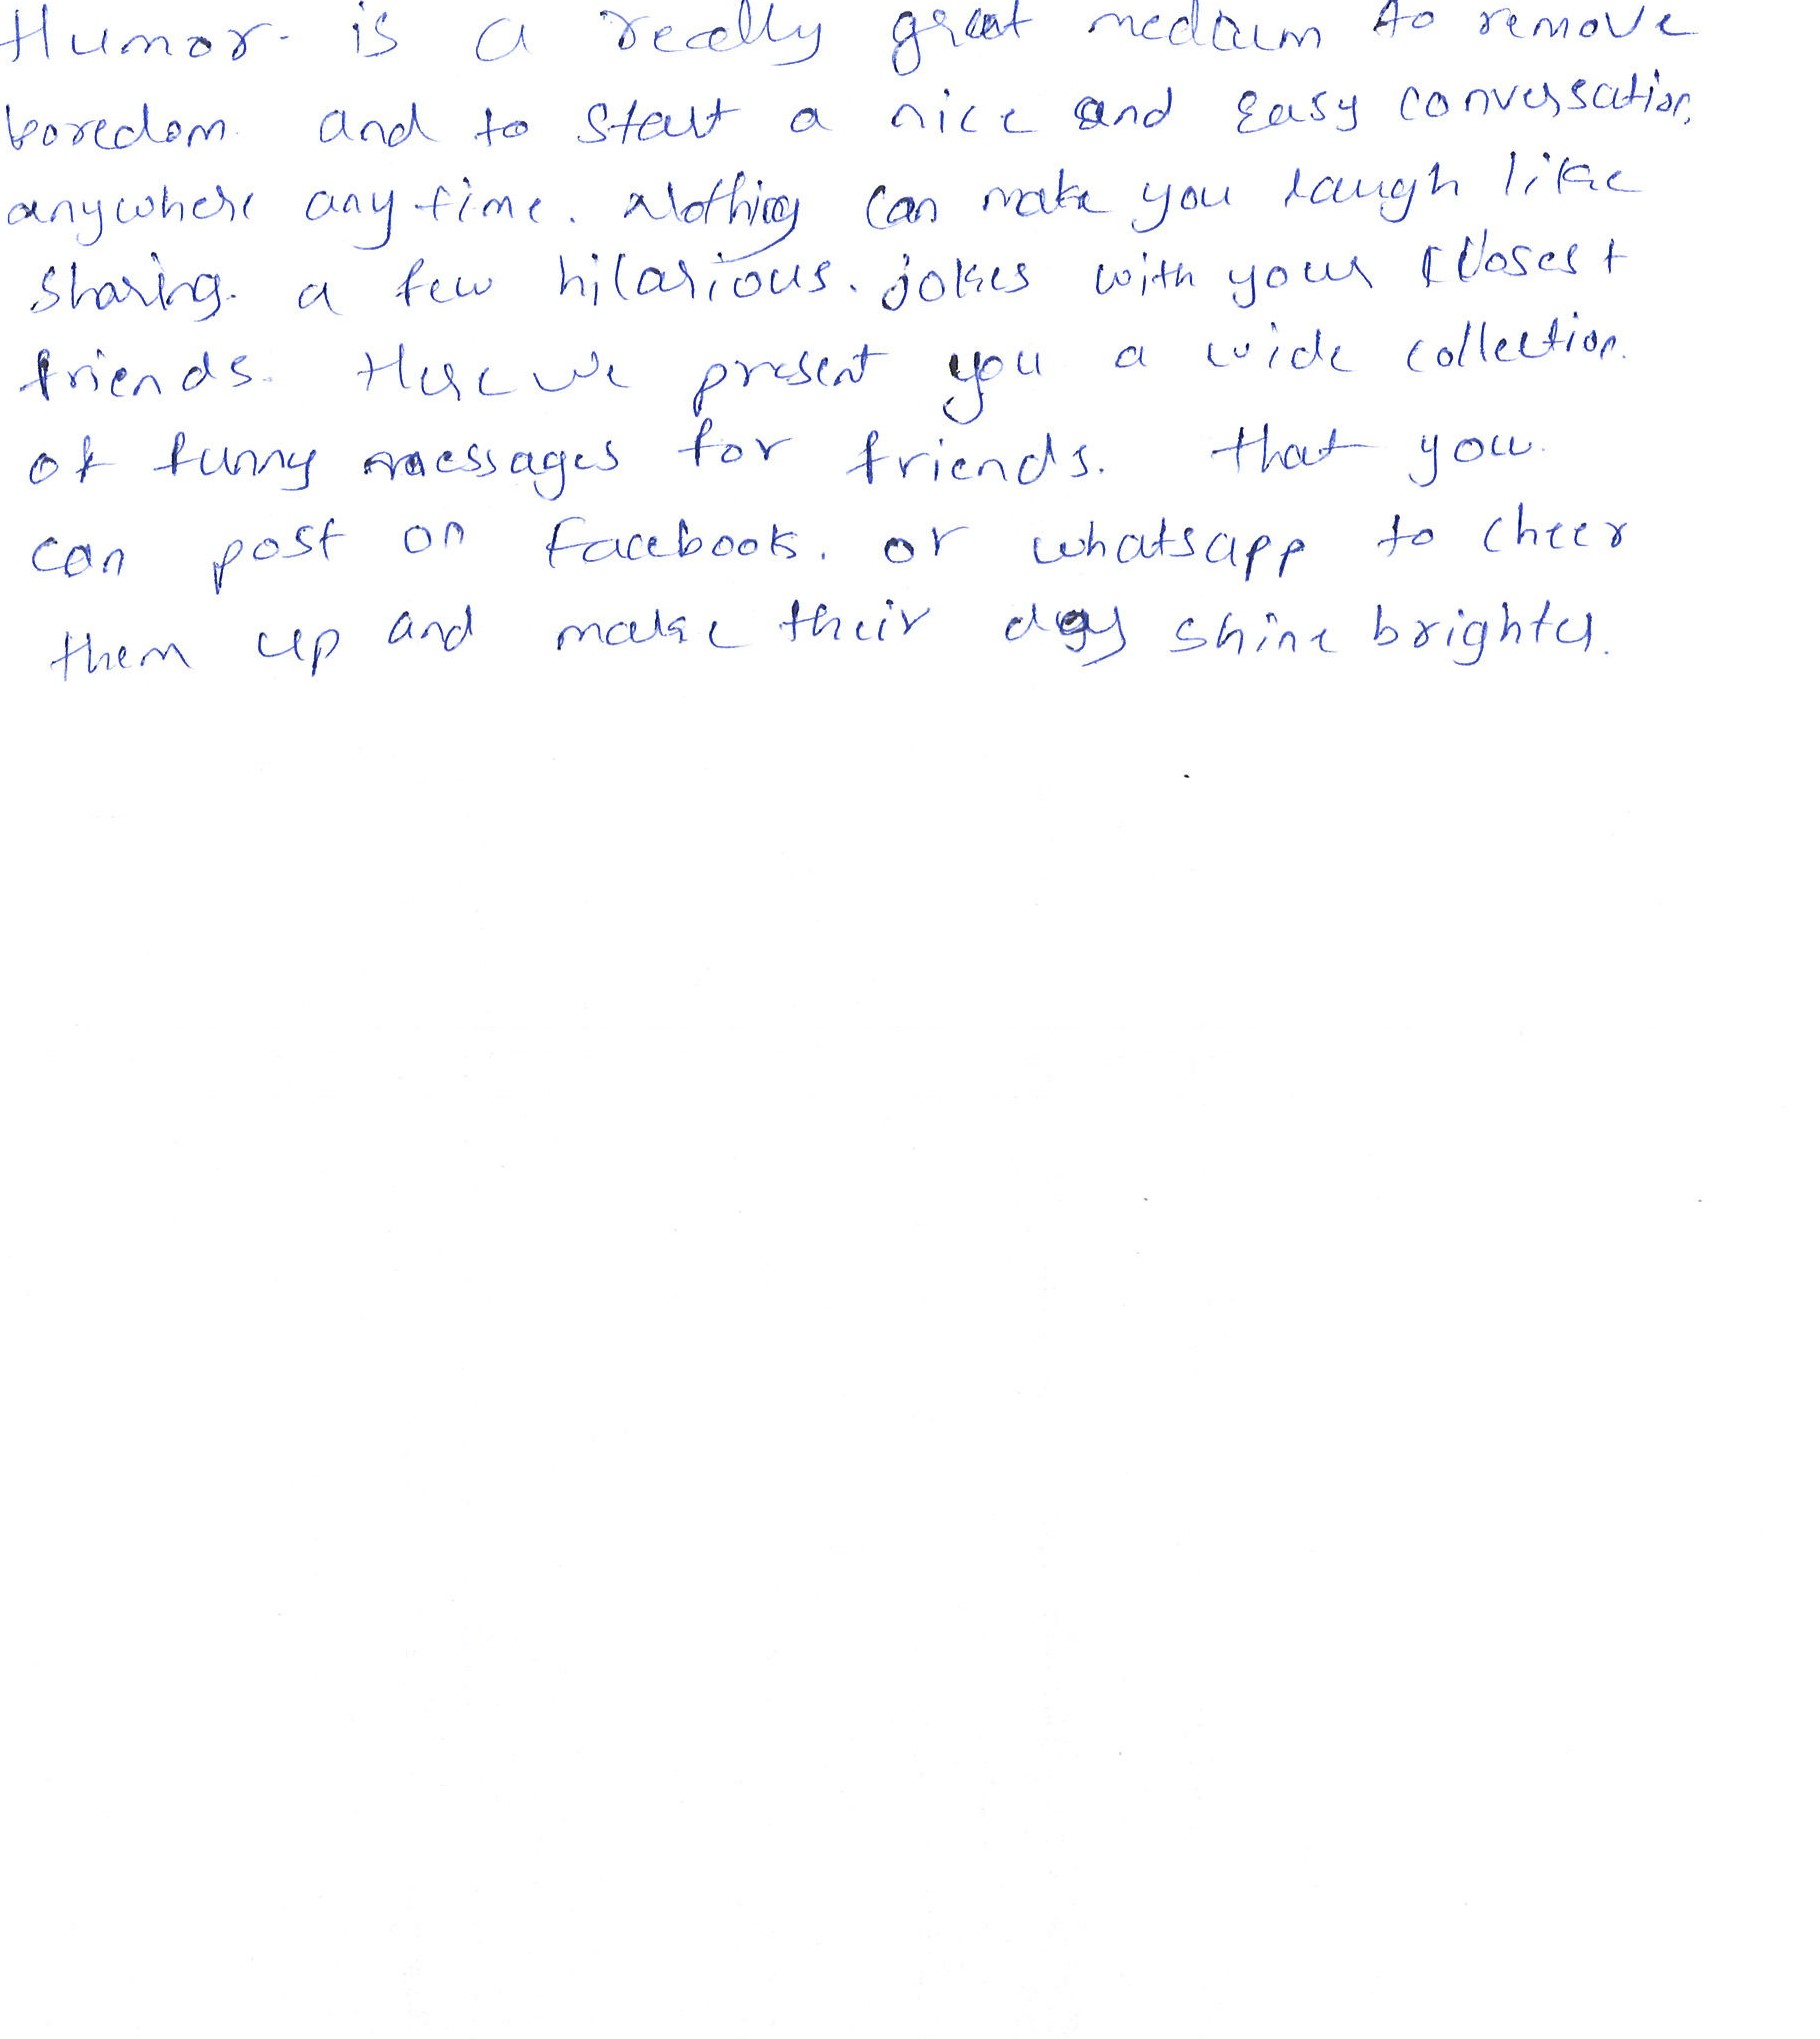 Humor is a really great medium to remove
boredom and to start a nice and easy conversation
anywhere any time. Nothing can make you laugh like
sharing a few hilarious. jokes with your closest
friends. Here we present you a wide collection.
of funny messages for friends. that you
can post on facebook. or whatsapp to cheer
them up and make their day shine brighter.